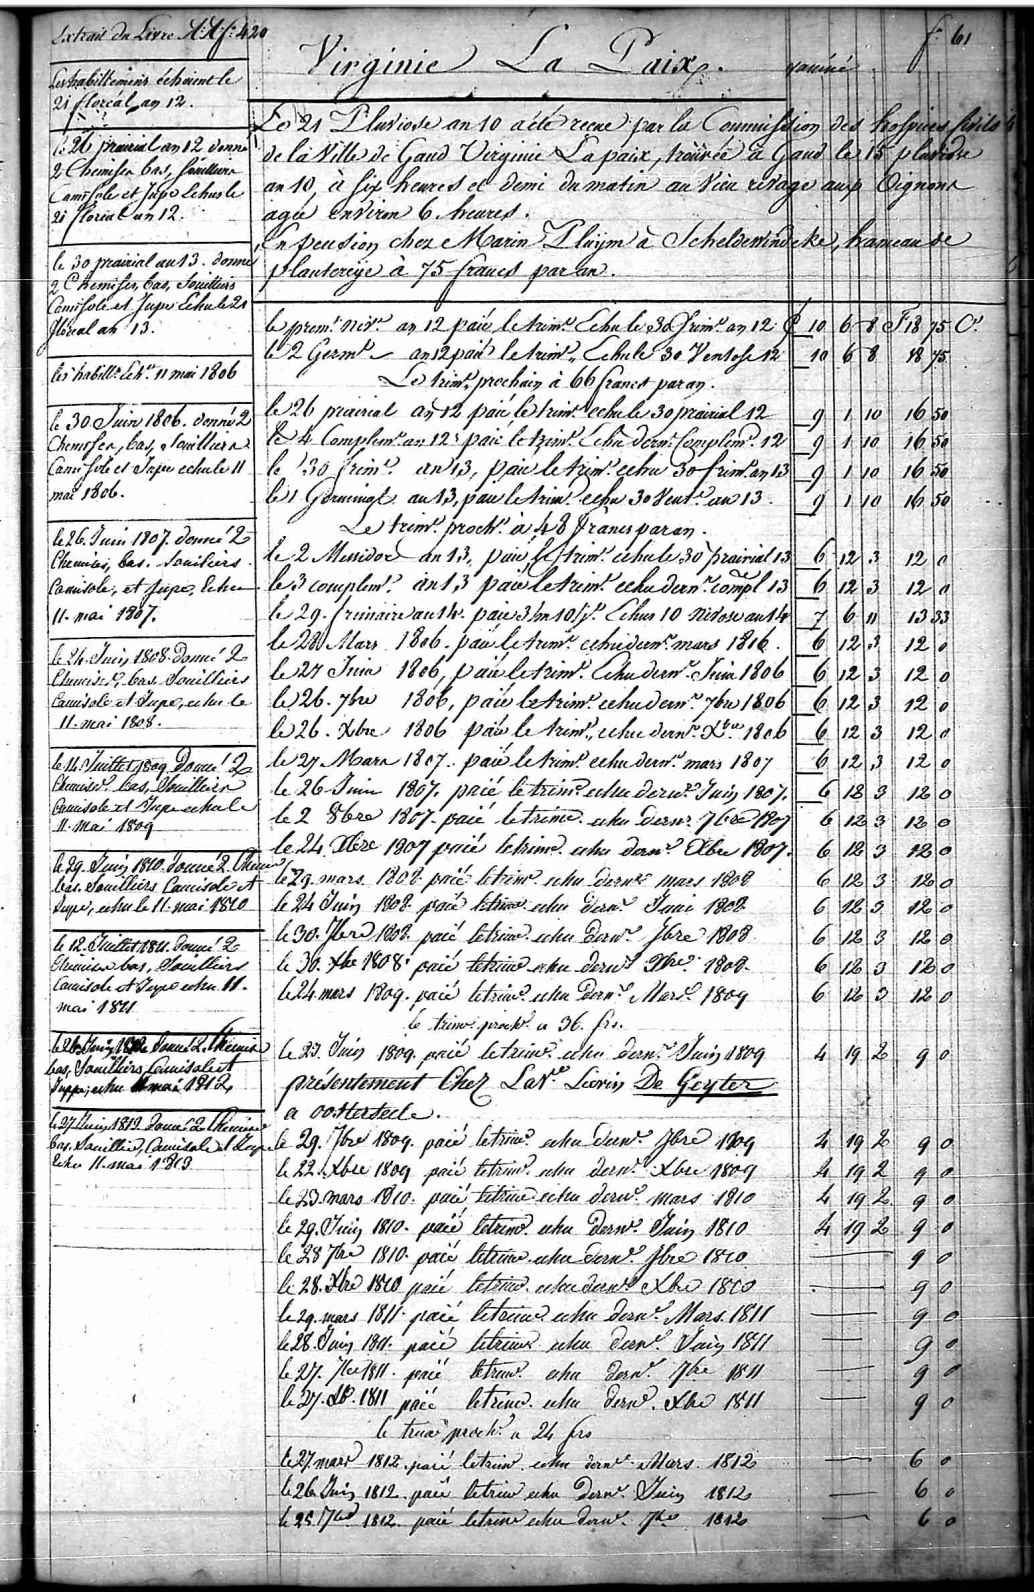 Extrait du Livre AA f: 420
f: 61
Virginie La Paix. vaccinée.
Les habillemens échoient le
21 floréal an 12.
le 26 prairial an 12 donné
2 Chemises, bas, souilliers
Camisole et Jupe Echus le
21 floréal an 12.
le 30 prairial an 13. donné
2 Chemises, bas, souilliers
Camisole et Jupe Echu le 21
floreal an 13.
les habillts. Ech. 11 mai 1806
le 30 Juin 1806. donné 2
Chemises, bas, Souilliers
Camisole et Jupe echu le 11
mai 1806.
le 26. Juin 1807. donné 2
Chemises, bas. Souliers
Camisole, et Jupe, Echu
11. mai 1807.
le 24. Juin 1808. donné 2
Chemises, bas. Souilliers
Camisole et Jupe, echu le
11. mai 1808.
le 14. Juillet 1809 donné 2
Chemises. bas, Souilliers
Camisole et Jupe echu le
11. Mai 1809
le 29. Juin 1810. donné 2. Chemis
bas. Souilliers Camisole et
Jupe, echu le 11. mai 1810
le 12. Juillet 1811. donné 2
Chemises bas, Souilliers
Camisole et Jupe echu 11.
mai 1811
le 26. Juin 1812 donné 2. Chemise
bas, Souilliers, Camisole et
Juppe, echu 11 mai 1812,
le 27 Juin 1812 donné 2 Chemise
bas, Souillier, Camisole et Jupe
Echu 11. mai 1813
Le 21 Pluviose an 10 a été recue par la Commission des hospices Civils
de la Ville de Gand Virginie La paix, trouvée à Gand le 15 pluviose
an 10, à six heures et demi du matin au vieu rivage aux Oignons
agée environ 6 heures.
En pension chez Marin Pluym à Scheldewindeke, hameau de
plantereye à 75 francs par an.
le premr. Nivse. an 12 paié le trimre. Echu le 30 frimre. an 12 £ 10 6 8 F 18 75 Cs.
le 2 Germl. an 12 paié le trimre. Echu le 30 Ventose 12 10 6 8 18 75
Le trimre. prochain à 66 francs par an.
le 26 prairial an 12 paié le trimre. echu le 30 prairial 12 9 1 10 16 50
le 4 Complemre. an 12 paié le trimre. Echu dernr. Complemre. 12 9 1 10 16 50
le 30 frimre. an 13, paié le trimre. echu 30 frimre. an 13 9 1 10 16 50
le 1 Germinal an 13, paié le trimre. echu 30 Vents. an 13. 9 1 10 16 50
Le trimre. proch. à 48 francs par an.
le 2 Messidor an 13, paié le trimre. echu le 30 prairial 13 6 12 3 12 0
le 3 complemre. an 13 paié le trimre. echu dernr. compl 13 6 12 3 12 0
le 29. frimaire an 14. paié 3 m 10 js. Echus 10 Nivose an 14 7 6 11 13 33
le 28 Mars 1806. paié le trimre. echu dernr. mars 1806. 6 12 3 12 0
le 27 Juin 1806, paié le trimre. Echu dernr. Juin 1806 6 12 3 12 0
le 26. 7bre 1806, paié le trimre. echu dernr. 7bre 1806 6 12 3 12 0
le 26. Xbre 1806 paié le trimre. echu dernr. Xbre 1806 6 12 3 12 0
le 27 Mars 1807. paié le trimre. echu dernr. mars 1807 6 12 3 12 0
le 26 Juin 1807. paié le trimre. echu dernr. Juin 1807. 6 12 3 12 0
le 2 8bre 1807. paié le trimre. echu dernr. 7bre 1807 6 12 3 12 0
le 24 Xbre 1807 paié le trimre. echu dernr. Xbre 1807. 6 12 3 12 0
le 29. mars 1808. paié le trimre. echu dernr. mars 1808 6 12 3 12 0
le 24 Juin 1808. paié le trimre. echu dernr. Juin 1808. 6 12 3 12 0
le 30. 7bre 1808. paié le trimre. echu dernr. 7bre 1808 6 12 3 12 0
le 30. Xbre 1808. paié le trimre. echu dernr. Xbre. 1808. 6 12 3 12 0
le 24 mars 1809. paié le trimre. echu dernr. Mars. 1809 6 12 3 12 0
le trimre. proch. a 36. frs.
le 23 Juin 1809. paié le trimre. echu dernr. Juin 1809 4 19 2 9 0
présentement Chez La Ve. Lievin De Geyter
a oosterzeele.
le 29. 7bre 1809. paié le trimre. echu dernr. 7bre 1809 4 19 2 9 0
le 22. Xbre 1809 paié le trimre. echu dernr. Xbre 1809 4 19 2 9 0
le 23 mars 1810. paié le trimre echu dernr. mars 1810 4 19 2 9 0
le 29. Juin 1810. paié le trimre. echu dernr. Juin 1810 4 19 2 9 0
le 28 7bre 1810. paié le trimre. echu dernr. 7bre 1810 9 0
le 28. Xbre 1810 paié le trimre. echu dernr. Xbre 1810 9 0
le 29. mars 1811. paié le trimre echu dernr. Mars. 1811 9 0
le 28 Juin 1811. paié le trimre. echu dernr. Juin 1811 9 0
le 27. 7bre 1811. paié le trimre. echu dernr. 7bre 1811 9 0
le 27. Xbr. 1811 paié le trimre. echu dernr. Xbre 1811 9 0
le trimre proch. a 24 frs
le 27. mars 1812. paié le trimre. echu dernr. Mars. 1812 6 0
le 26 Juin 1812. paié le trimre echu dernr. Juin 1812 6 0
le 25. 7bre 1812. paié le trimre echu dernr. 7bre 1812 6 0